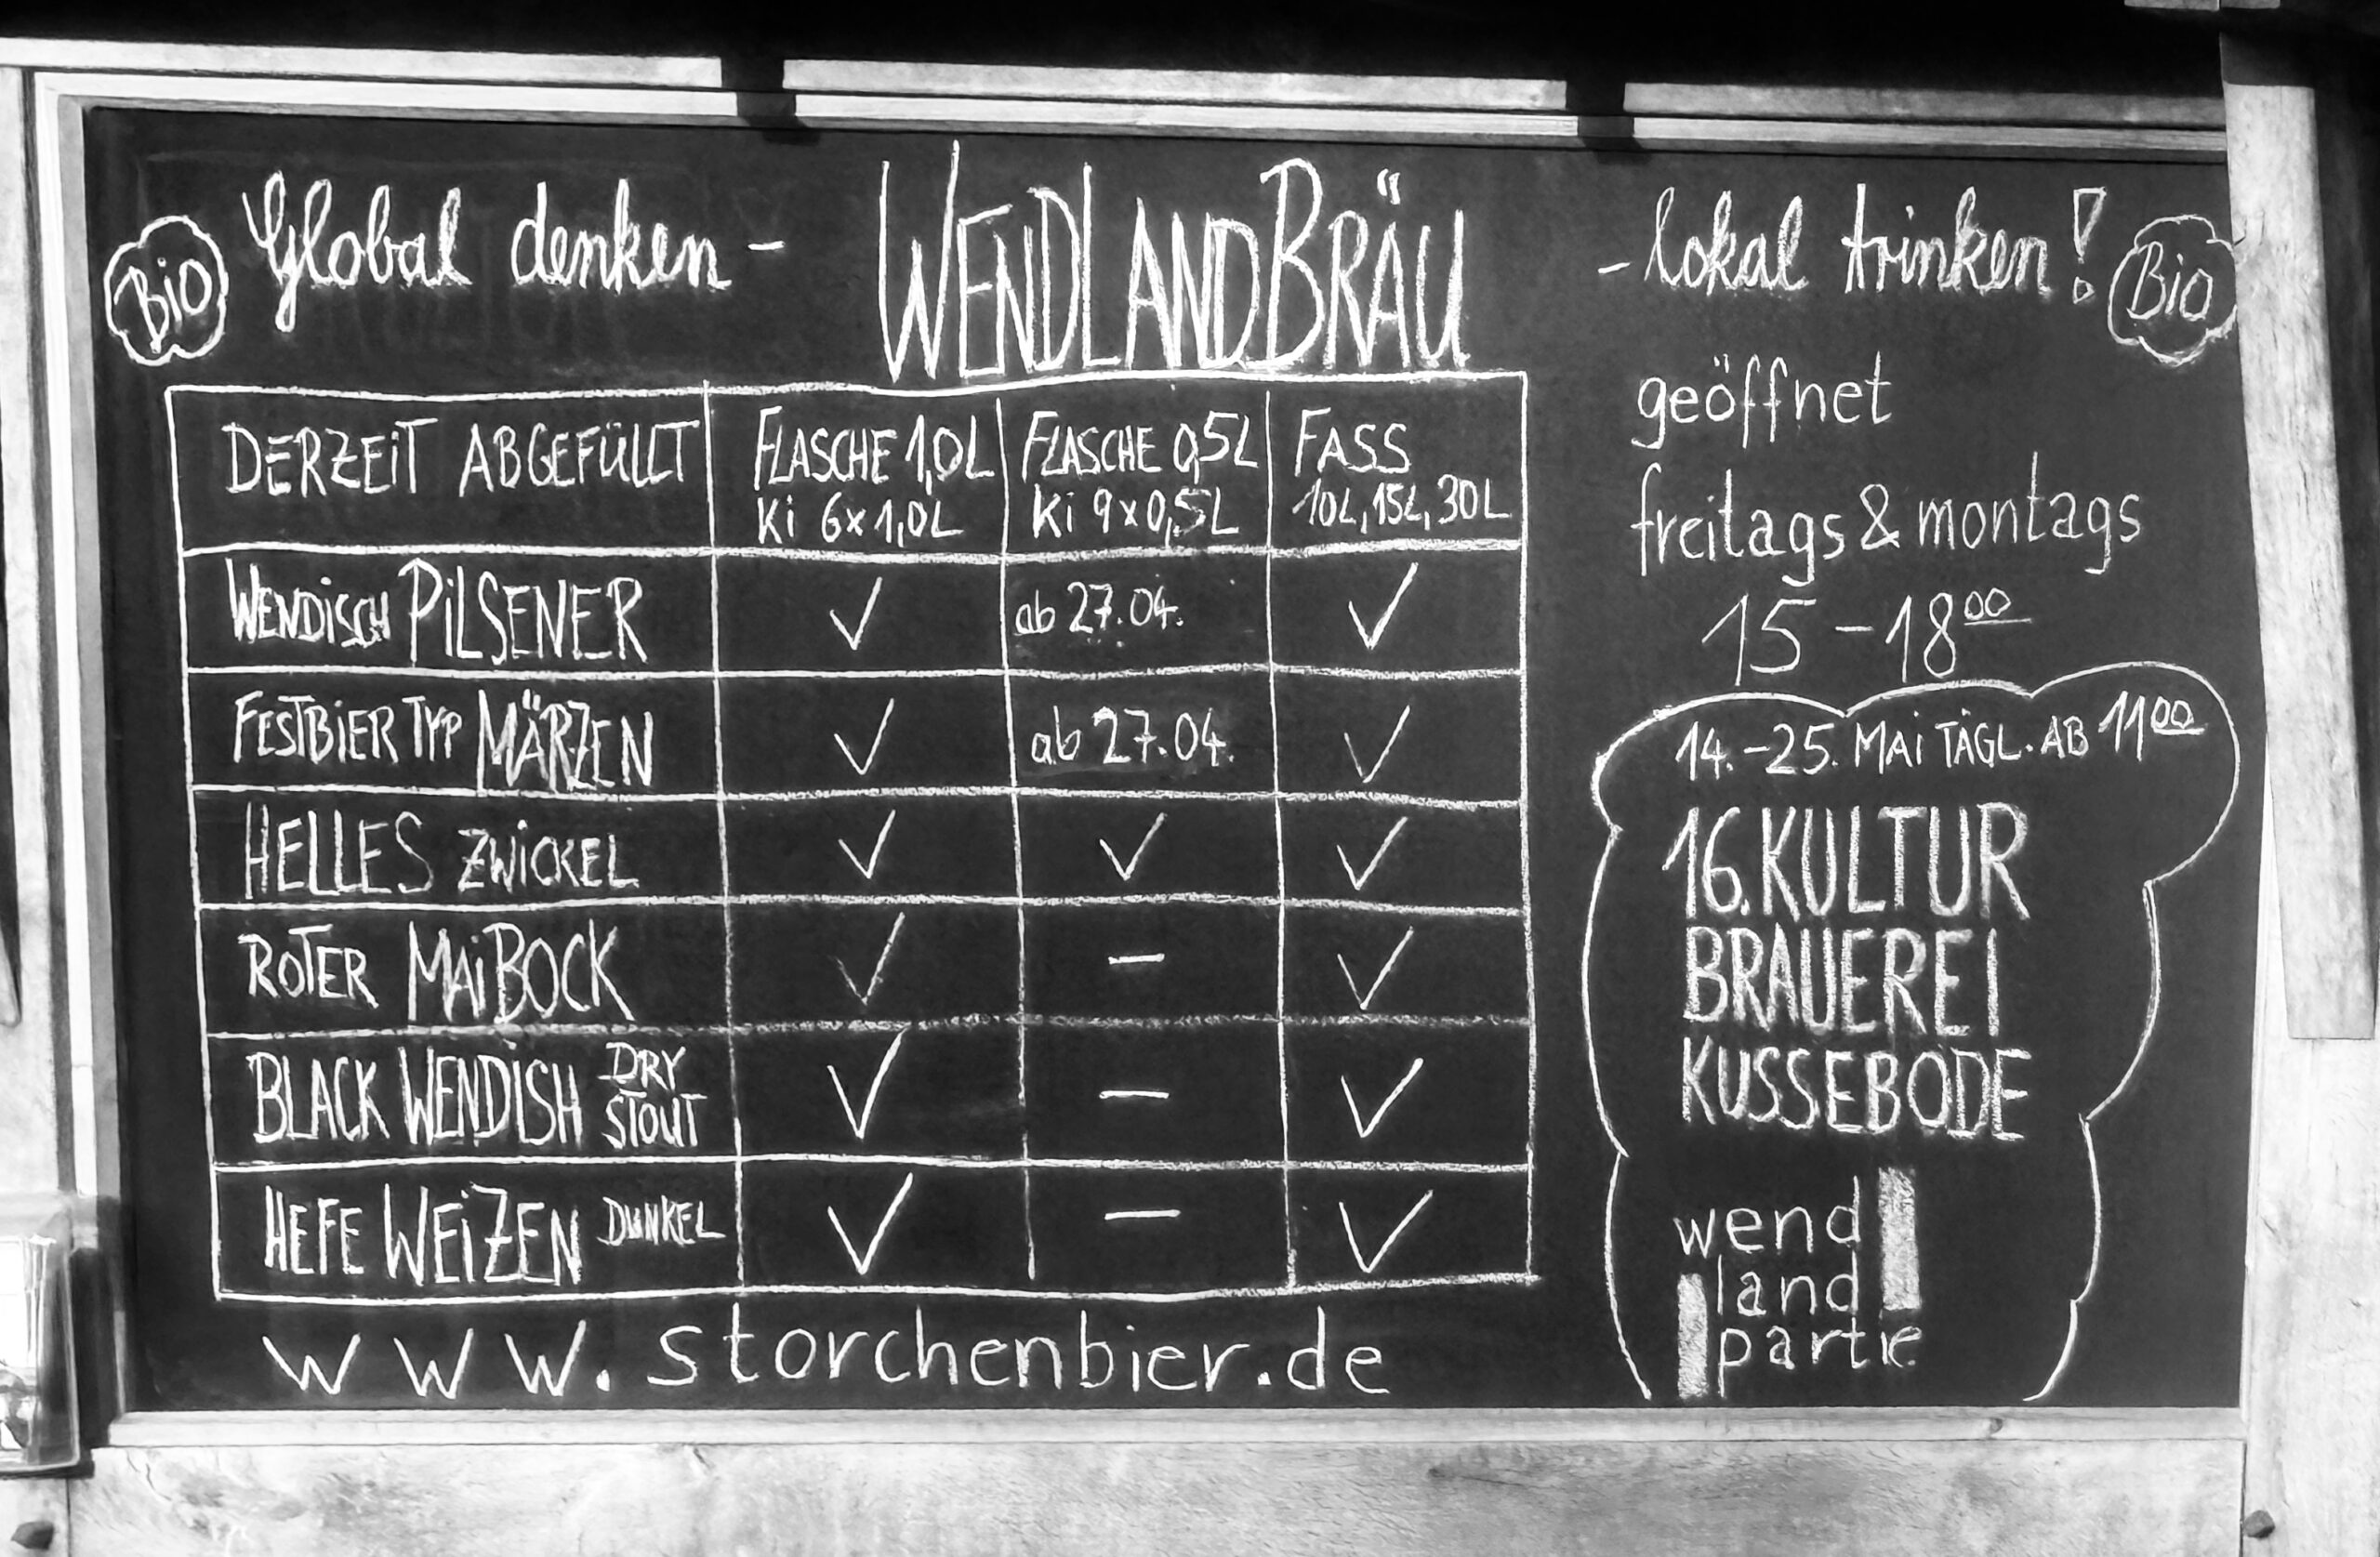 Bio Global denken - WENDLANDBRÄU - lokal trinken! Bio
DERZEIT ABGEFÜLLT FLASCHE 1,0L FLASCHE 0,5L FASS
Ki 6x1,0L Ki 9x0,5L 10L, 15L, 30L
WENDISCH PILSENER ✓ ab 27.04. ✓
FESTBIER TYP MÄRZEN ✓ ab 27.04. ✓
HELLES ZWICKEL ✓ ✓ ✓
ROTER MAIBOCK ✓ – ✓
BLACK WENDISH DRY STOUT ✓ – ✓
HEFE WEIZEN DUNKEL ✓ – ✓
www.storchenbier.de
geöffnet
freitags & montags
15 – 18 00
14. – 25. MAI TÄGL. AB 11 00
16. KULTUR
BRAUEREI
KUSSEBODE
wend
land
partie